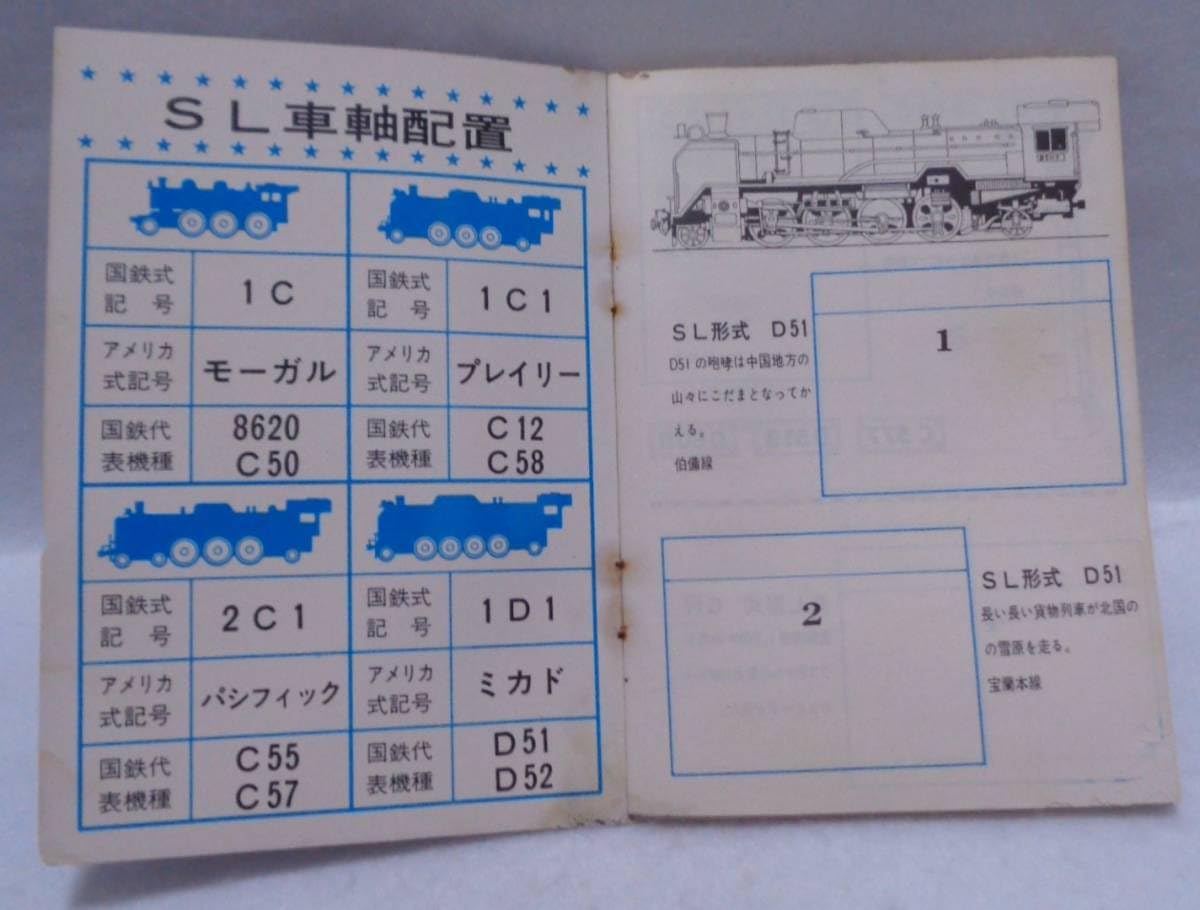 SL車軸配置
国鉄式
記 号
1C
国鉄式
記 号
1C1
アメリカ
式記号
モーガル
アメリカ
式記号
プレイリー
国鉄代
表機種
8620
C50
国鉄代
表機種
C12
C58
国鉄式
記 号
2C1
国鉄式
記 号
1D1
アメリカ
式記号
パシフィック
アメリカ
式記号
ミカド
国鉄代
表機種
C55
C57
国鉄代
表機種
D51
D52
SL形式 D51
D51の咆哮は中国地方の
山々にこだまとなってか
える。
伯備線
1
2
SL形式 D51
長い長い貨物列車が北国の
の雪原を走る。
宝蘭本線